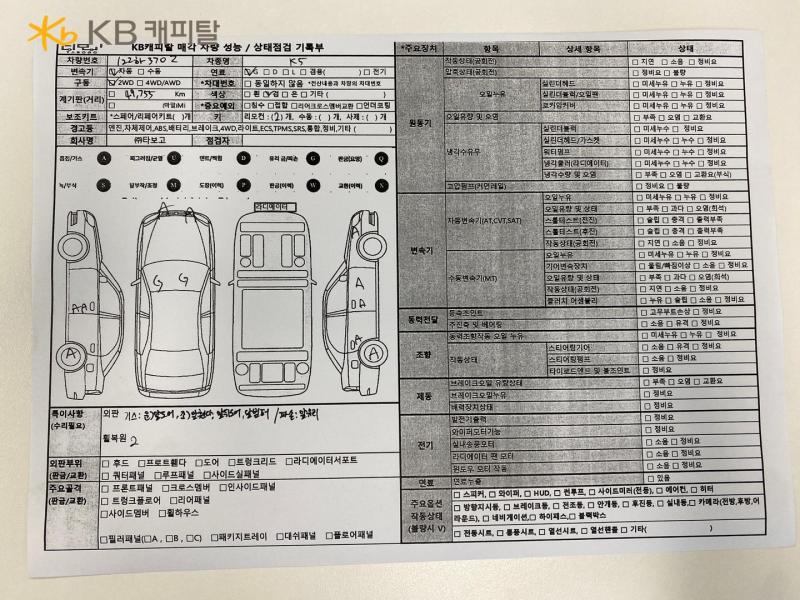 KB 캐피탈
KB캐피탈 매각 차량 성능 / 상태점검 기록부
차량번호 차종명 K5
변속기 ☑자동 □수동 연료 ☑G □D □L □겸용( ) □전기
구동 ☑2WD □4WD/AWD *차대번호 □동일하지 않음 *전산내용과 차량의 차대번호
계기판(거리) □ 49,755 Km 색상 □흰 □은 □기타 ( )
□ (마일)Mi *중요예외 □침수 □접합 □리어크로스멤버교환 □언더코팅
보조키트 *스페어/리페어키트( )개 키 리모컨 : (2)개, 수동 ( )개, 사제 : ( )개
경고등 엔진,차체제어,ABS,배터리,브레이크,4WD,라이트,ECS,TPMS,SRS,통합,정비,기타 ( )
회사명 ㈜타보고 점검자
흠집/기스 A 찌그러짐/균열 U 덴트/복합 D 유리 금/파손 G 판금(요망) Q
녹/부식 S 탈부착/조정 M 도장(이력) D 판금(이력) P W 교환(이력) X
라디에이터
A A
G G
A A D
A
D A
A
A A
A
특이사항
(수리필요)
외판
휠복원 2
외판부위
(판금/교환)
□후드 □프로트휀다 □도어 □트렁크리드 □라디에이터서포트
□쿼터패널 □루프패널 □사이드실패널
주요골격
(판금/교환)
□프론트패널 □크로스멤버 □인사이드패널
□트렁크플로어 □리어패널
□사이드멤버 □휠하우스
□필러패널(□A , □B , □C) □패키지트레이 □대쉬패널 □플로어패널
*주요장치 항목 상세 항목 상태
원동기
작동상태(공회전) □지연 □소음 □정비요
압축상태(공회전) □정비요 □불량
오일누유
실린더헤드 □미세누유 □누유 □정비요
실린더블럭/오일팬 □미세누유 □누유 □정비요
로커암커버 □미세누유 □누유 □정비요
오일유량 및 오염 □부족 □오염 □교환요
냉각수유무
실린더블럭 □미세누수 □누수 □정비요
실린더헤드/가스켓 □미세누수 □누수 □정비요
워터펌프 □미세누수 □누수 □정비요
냉각쿨러(라디에이터) □미세누수 □누수 □정비요
냉각수량 및 오염 □부족 □오염 □교환요(부식)
고압펌프(커먼레일) □정비요 □불량
변속기
자동변속기(AT,CVT,SAT)
오일누유 □미세누유 □누유 □정비요
오일유량 및 상태 □부족 □과다 □오염(희석)
스톨테스트(전진) □슬립 □충격 □출력부족
스톨테스트(후진) □슬립 □충격 □출력부족
작동상태(공회전) □지연 □소음 □정비요
수동변속기(MT)
오일누유 □미세누유 □누유 □정비요
기어변속장치 □물림/빠짐이상 □소음 □정비요
오일유량 및 상태 □부족 □과다 □오염(희석)
작동상태(공회전) □지연 □소음 □정비요
클러치 어셈블리 □누유 □슬립 □소음 □정비요
동력전달
등속조인트 □고무부트손상 □정비요
추진축 및 베어링 □소음 □유격 □정비요
조향
동력조향작동 오일 누유 □미세누유 □누유 □정비요
작동상태
스티어링기어 □소음 □유격 □정비요
스티어링펌프 □소음 □정비요
타이로드앤드 및 볼조인트 □정비요
제동
브레이크오일 유량상태 □부족 □오염 □교환요
브레이크오일누유 □정비요
배력장치상태 □정비요
전기
발전기출력 □정비요
와이퍼모터기능 □정비요
실내송풍모터 □소음 □정비요
라디에이터 팬 모터 □소음 □정비요
윈도우 모터 작동 □소음 □정비요
연료 연료누출 □있음
주요옵션
작동상태
(불량시 V)
□스피커, □와이퍼, □HUD, □썬루프, □사이드미러(전동), □에어컨, □히터
□방향지시등, □브레이크등, □전조등, □안개등, □후진등, □실내등,□카메라(전방,후방,어
라운드), □네비게이션,□하이패스,□블랙박스
□전동시트, □통풍시트, □열선시트, □열선핸들 □기타( )